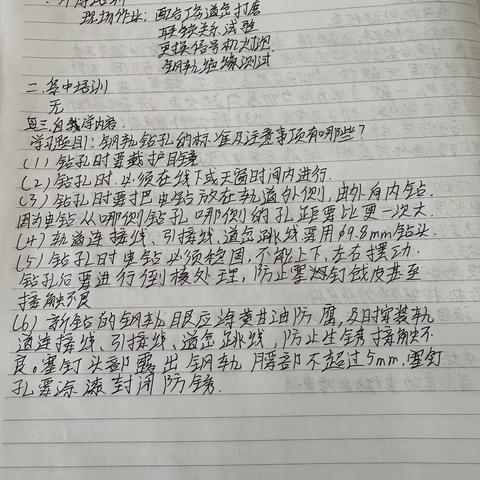 现场作业：配合工务道岔打磨
联锁关系试验
更换信号机灯泡
钢轨绝缘测试
二、集中培训
无
三、自我学内容
学习题目：钢轨钻孔的标准及注意事项有哪些？
（1）钻孔时要戴护目镜
（2）钻孔时必须在线下或天窗时间内进行.
（3）钻孔时要把电钻放在轨道外侧，由外向内钻.
因为电钻从哪侧钻孔哪侧的孔距要比更一次大.
（4）轨道连接线、引接线、道岔跳线要用φ9.8mm钻头.
（5）钻孔时电钻必须稳固，不能上下，左右摆动.
钻孔后要进行倒棱处理，防止塞钉铁皮甚至
接触不良
（6）新钻的钢轨眼应涂黄甘油防腐，及时安装轨
道连接线、引接线、道岔跳线，防止生锈接触不
良。塞钉头部露出钢轨腰部不超过5mm，塞钉
孔要涂漆封闭防锈.